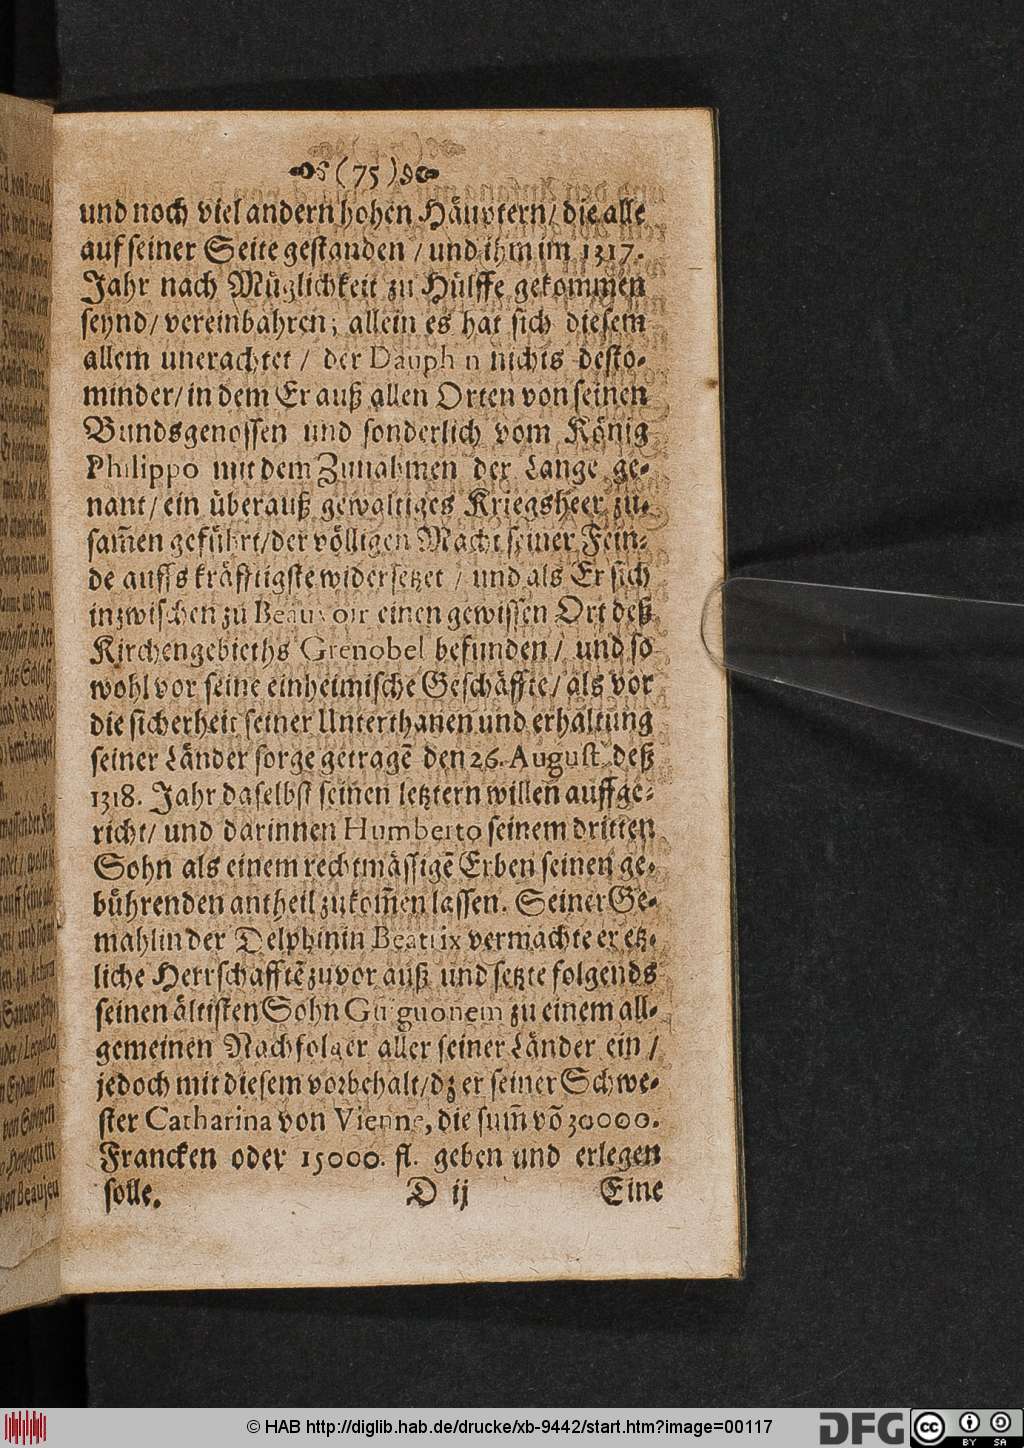 (75)
und noch viel andern hohen Häuptern/ die alle
auf seiner Seite gestanden / und ihm im 1317.
Jahr nach Müglichkeit zu Hülffe gekommen
seynd/ vereinbahren; allein es hat sich diesem
allem unerachtet / der Dauphin nichts desto-
minder/ in dem Er auß allen Orten von seinen
Bundsgenossen und sonderlich vom König
Philippo mit dem Zunahmen der Lange ge-
nant/ ein überauß gewaltiges Kriegsheer zu-
sam̃en geführt/ der völligen Macht seiner Fein-
de auffs kräfftigste widersetzet / und als Er sich
inzwischen zu Beauvoir einen gewissen Ort deß
Kirchengebieths Grenobel befunden / und so
wohl vor seine einheimische Geschäffte/ als vor
die sicherheit seiner Unterthanen und erhaltung
seiner Länder sorge getragē den 26. August. deß
1318. Jahr daselbst seinen letztern willen auffge-
richt/ und darinnen Humberto seinem dritten
Sohn als einem rechtmässigē Erben seinen ge-
bührenden antheil zukom̃en lassen. Seiner Ge-
mahlin der Delphinin Beatrix vermachte er etz-
liche Herrschafftē zuvor auß und setzte folgends
seinen ältisten Sohn Guiguonem zu einem all-
gemeinen Nachfolger aller seiner Länder ein /
jedoch mit diesem vorbehalt/ dz er seiner Schwe-
ster Catharina von Vienne, die sum̃ võ 30000.
Francken oder 15000. fl. geben und erlegen
solle. D ij Eine
© HAB http://diglib.hab.de/drucke/xb-9442/start.htm?image=00117
DFG
cc BY SA